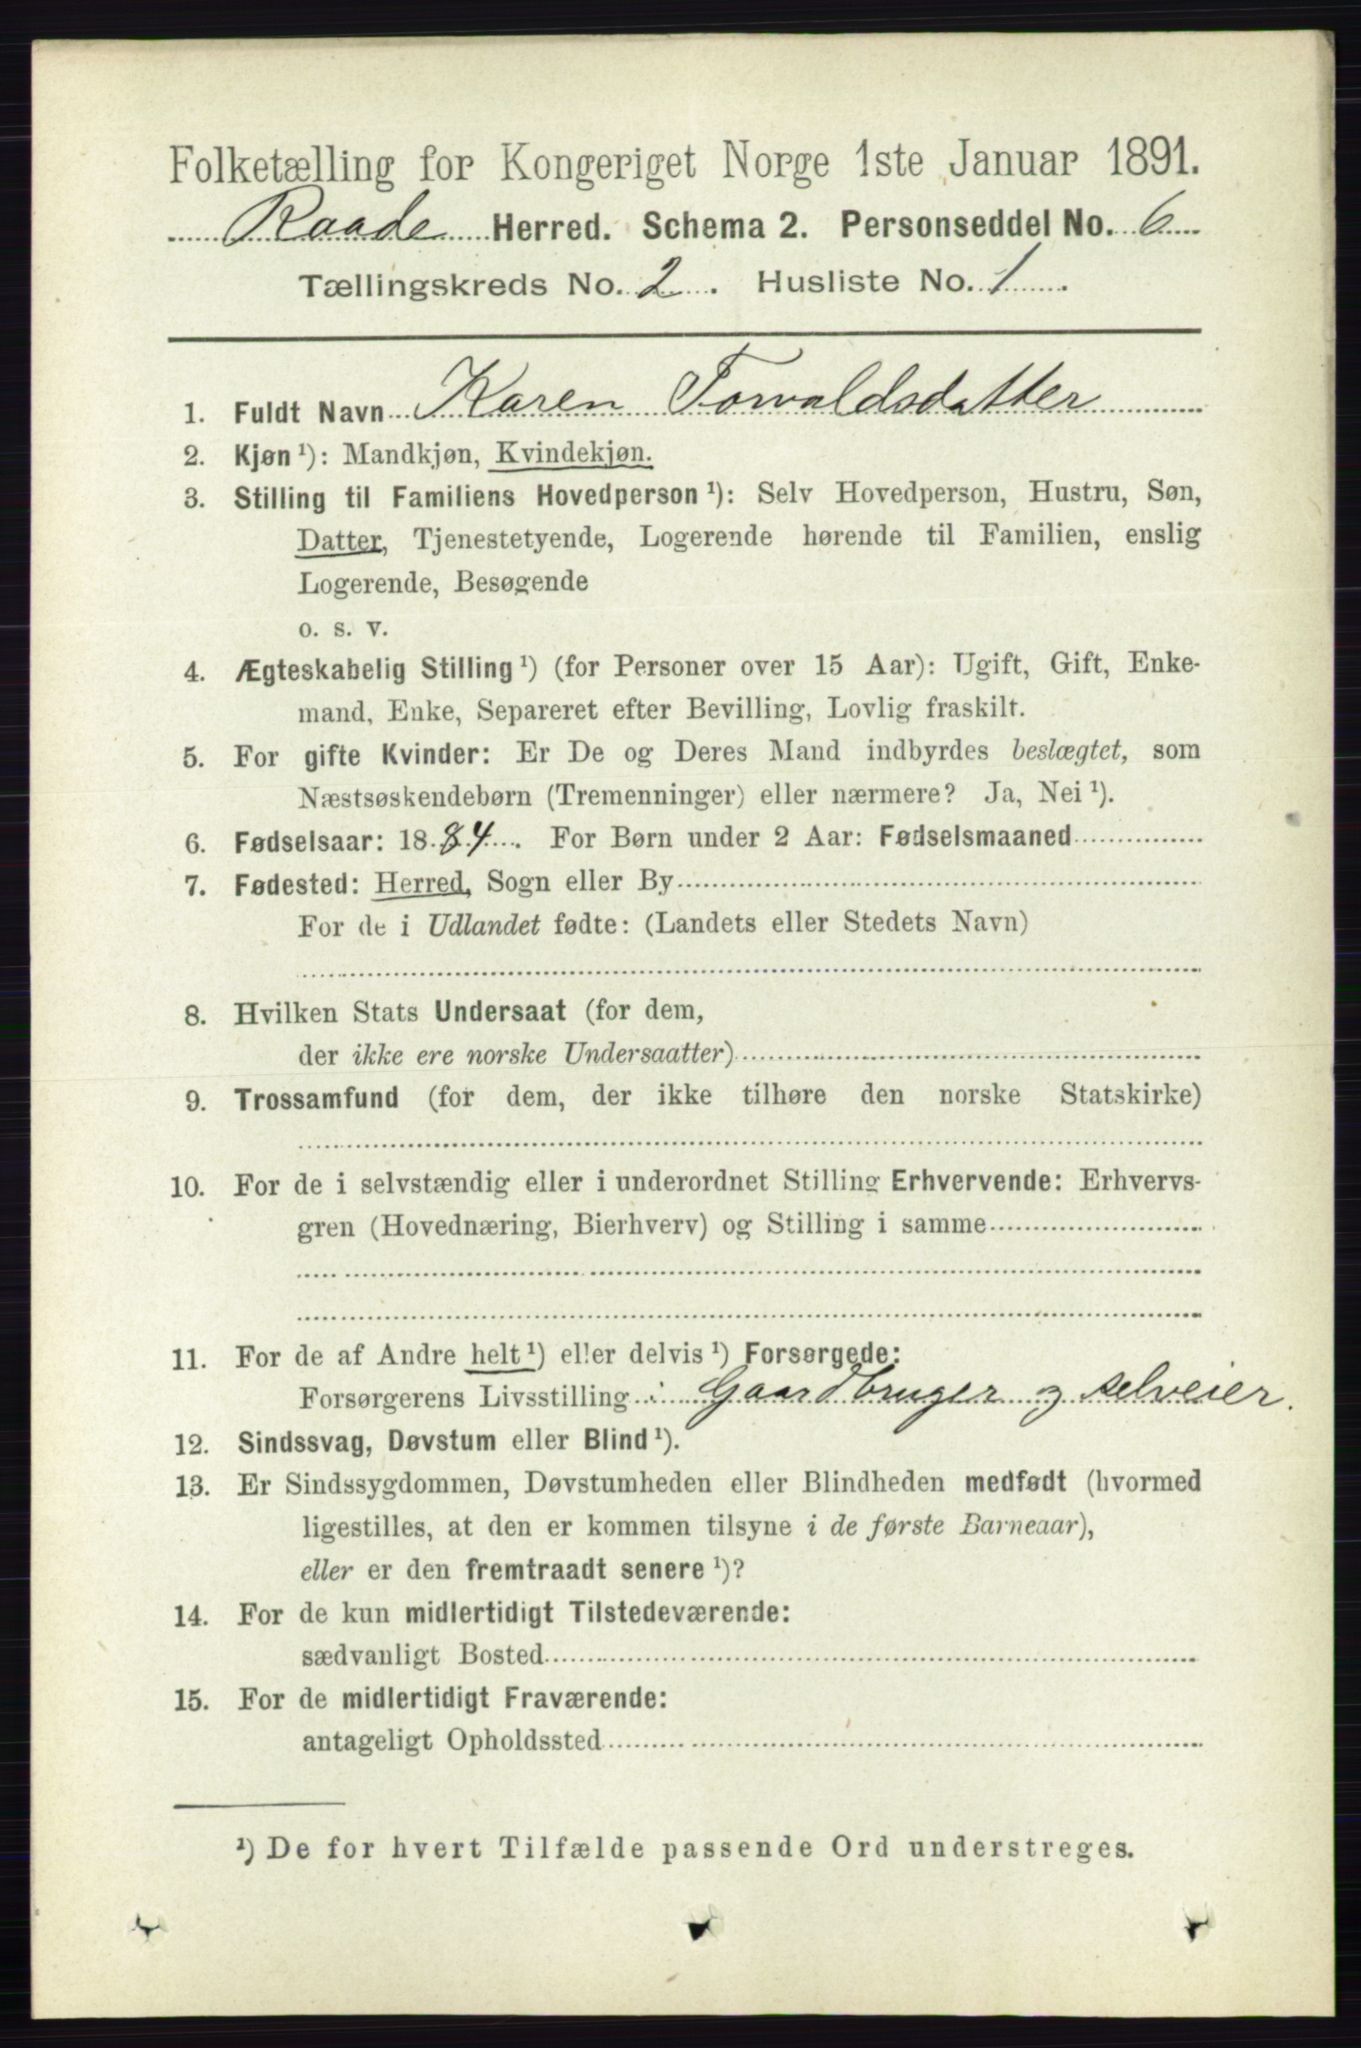 Folketælling for Kongeriget Norge 1ste Januar 1891.
Raade Herred. Schema 2. Personseddel No. 6
Tællingskreds No. 2. Husliste No. 1.
1. Fuldt Navn Karen Torvaldsdatter
2. Kjøn¹): Mandkjøn, Kvindekjøn.
3. Stilling til Familiens Hovedperson¹): Selv Hovedperson, Hustru, Søn,
Datter, Tjenestetyende, Logerende hørende til Familien, enslig
Logerende, Besøgende
o. s. v.
4. Ægteskabelig Stilling¹) (for Personer over 15 Aar): Ugift, Gift, Enke-
mand, Enke, Separeret efter Bevilling, Lovlig fraskilt.
5. For gifte Kvinder: Er De og Deres Mand indbyrdes beslægtet, som
Næstsøskendebørn (Tremenninger) eller nærmere? Ja, Nei¹).
6. Fødselsaar: 1884. For Børn under 2 Aar: Fødselsmaaned
7. Fødested: Herred, Sogn eller By
For de i Udlandet fødte: (Landets eller Stedets Navn)
8. Hvilken Stats Undersaat (for dem,
der ikke ere norske Undersaatter)
9. Trossamfund (for dem, der ikke tilhøre den norske Statskirke)
10. For de i selvstændig eller i underordnet Stilling Erhvervende: Erhvervs-
gren (Hovednæring, Bierhverv) og Stilling i samme
11. For de af Andre helt¹) eller delvis¹) Forsørgede:
Forsørgerens Livsstilling : Gaardbruger og selveier.
12. Sindssvag, Døvstum eller Blind¹).
13. Er Sindssygdommen, Døvstumheden eller Blindheden medfødt (hvormed
ligestilles, at den er kommen tilsyne i de første Barneaar),
eller er den fremtraadt senere¹)?
14. For de kun midlertidigt Tilstedeværende:
sædvanligt Bosted
15. For de midlertidigt Fraværende:
antageligt Opholdssted
¹) De for hvert Tilfælde passende Ord understreges.